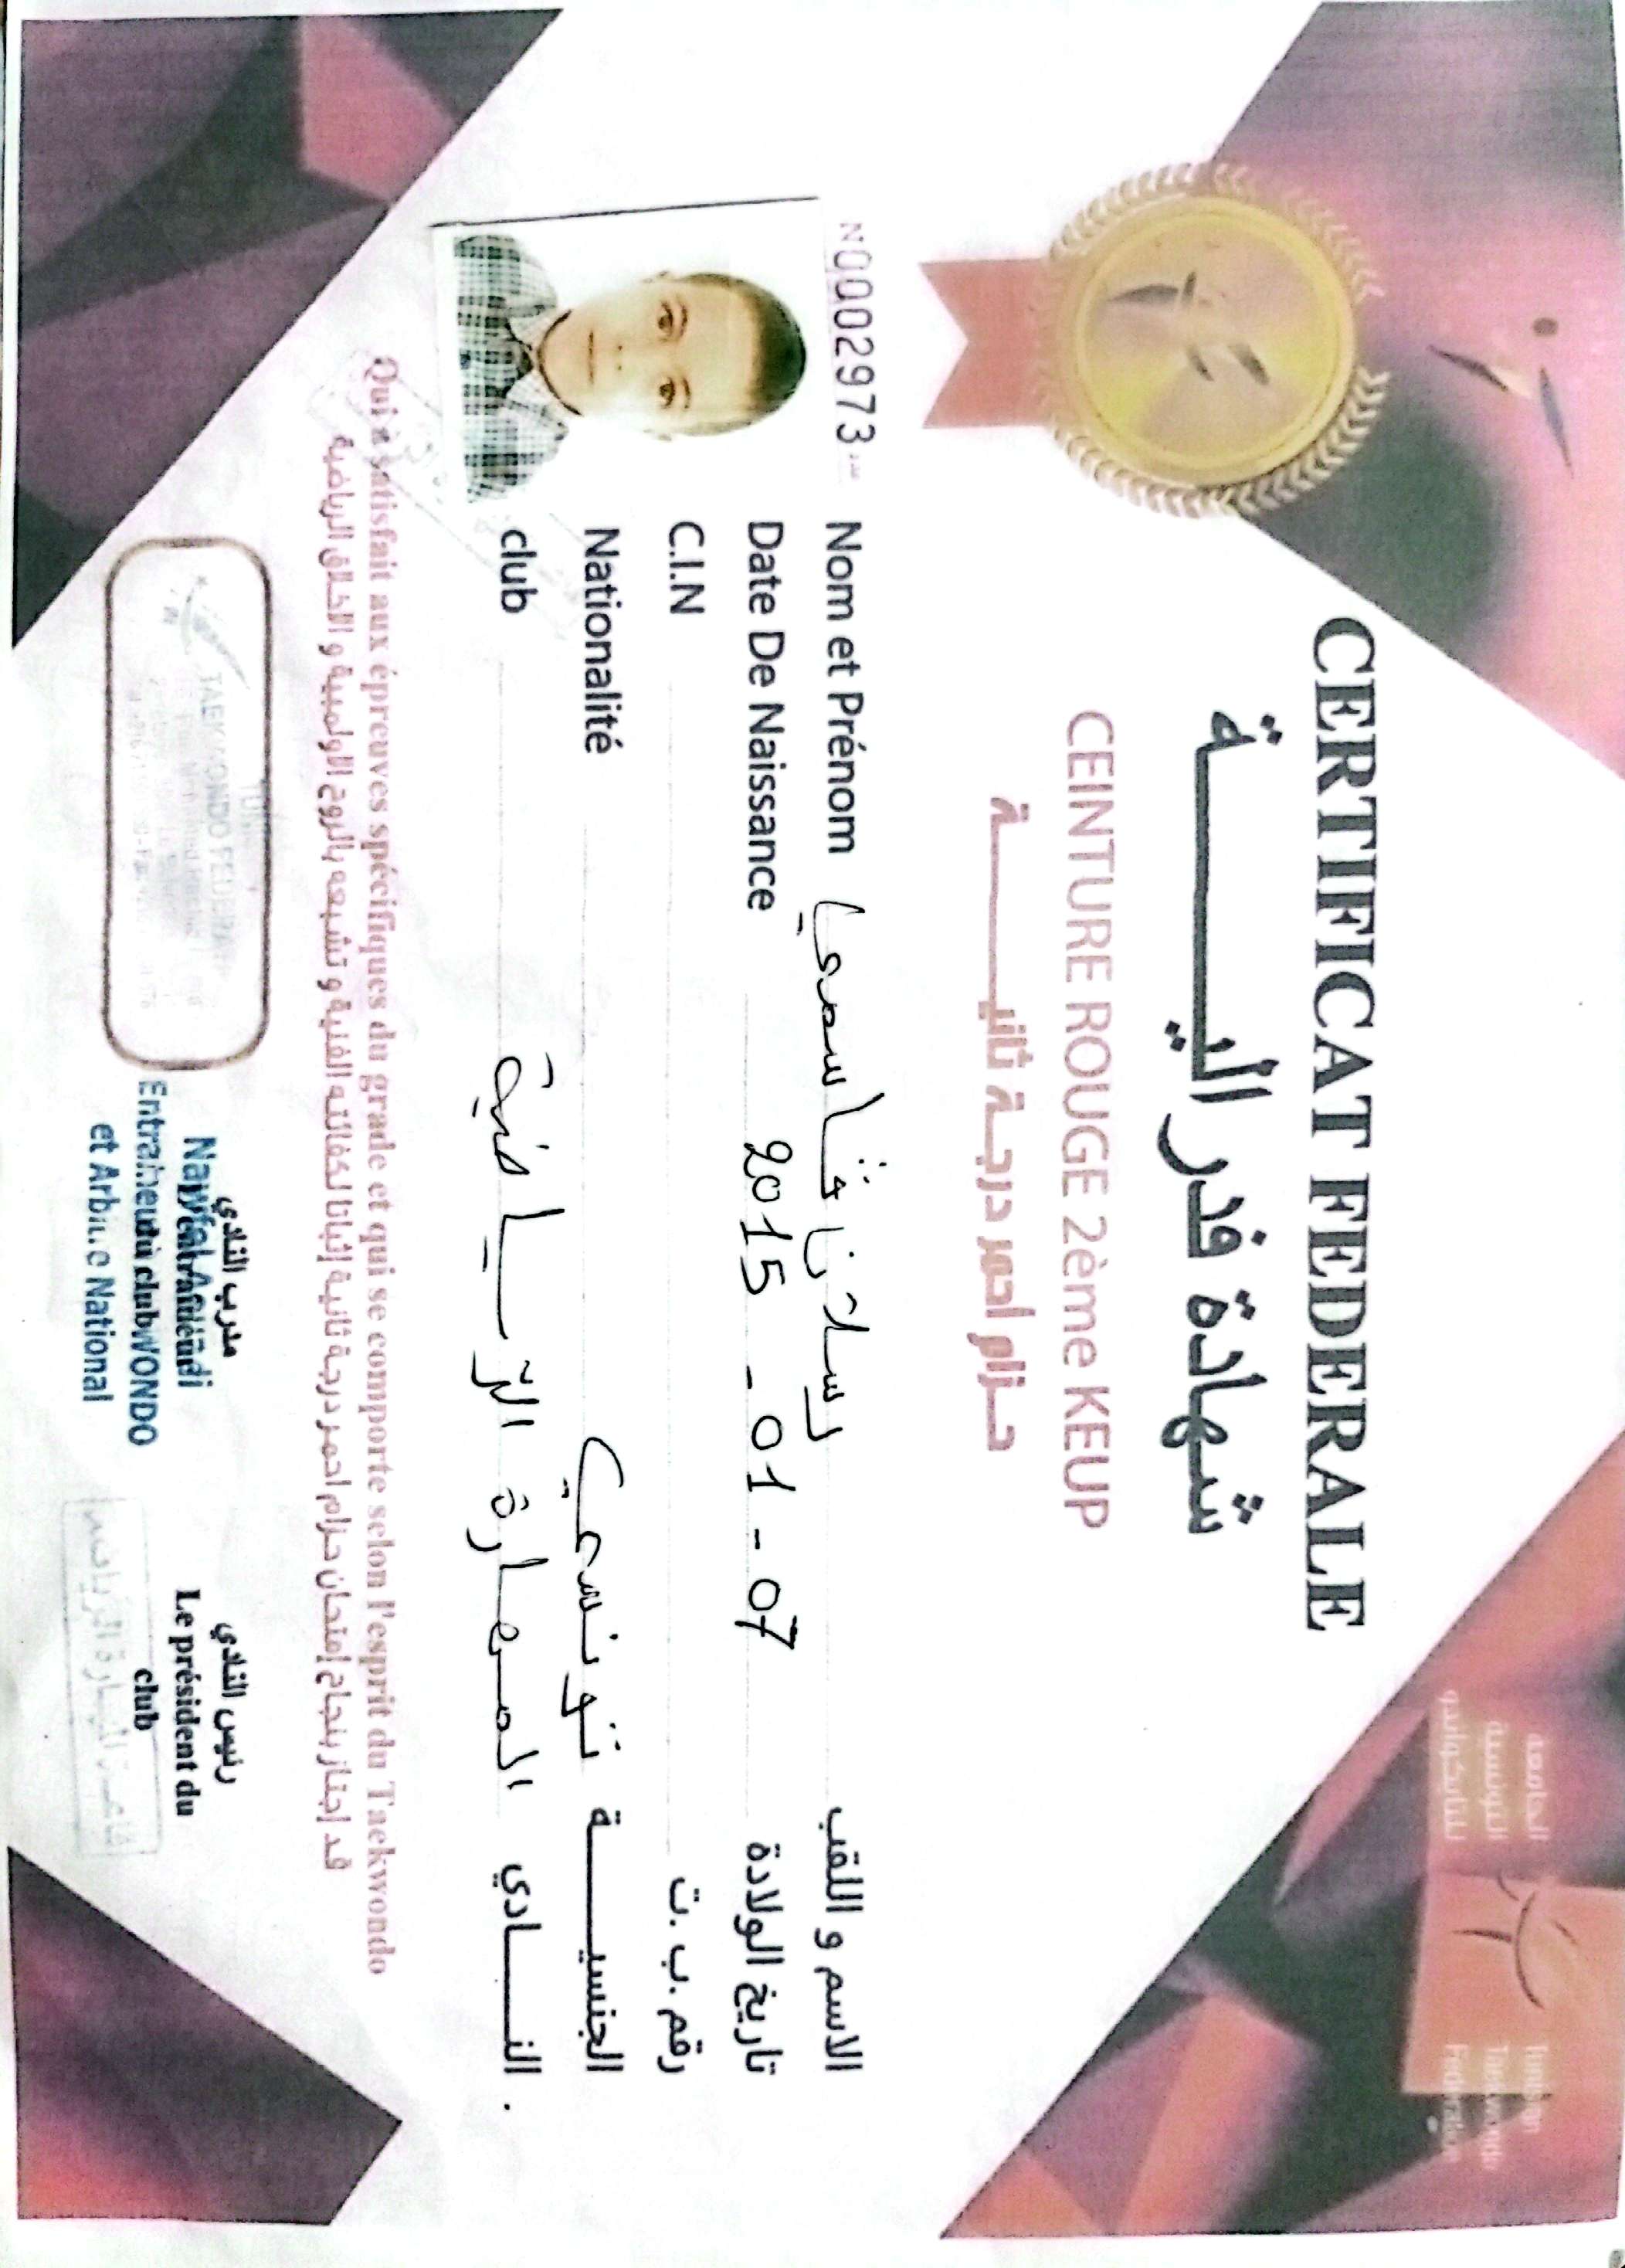 الجامعة
التونسية
للتايكواندو
Tunisian
Taekwondo
Federation
CERTIFICAT FEDERALE
شهادة فدرالية
CEINTURE ROUGE 2ème KEUP
حزام أحمر درجة ثانية
N0002973
Nom et Prénom رسلان قاسمي الاسم و اللقب
Date De Naissance 2015 - 01 - 07 تاريخ الولادة
C.I.N رقم ب.ت.
Nationalité تونسي الجنسية
club المهارة الرياضية النادي
Qui a satisfait aux épreuves spécifiques du grade et qui se comporte selon l'esprit du Taekwondo
قد إجتاز بنجاح إمتحان حزام احمر درجة ثانية إثباتا لكفائته الفنية و تشبعه بالروح الاولمبية و الاخلاق الرياضية
مدرب النادي
Entraineur
du club WONDO
et Arbitre National
رئيس النادي
Le président du
club
TAEKWONDO FEDERATION